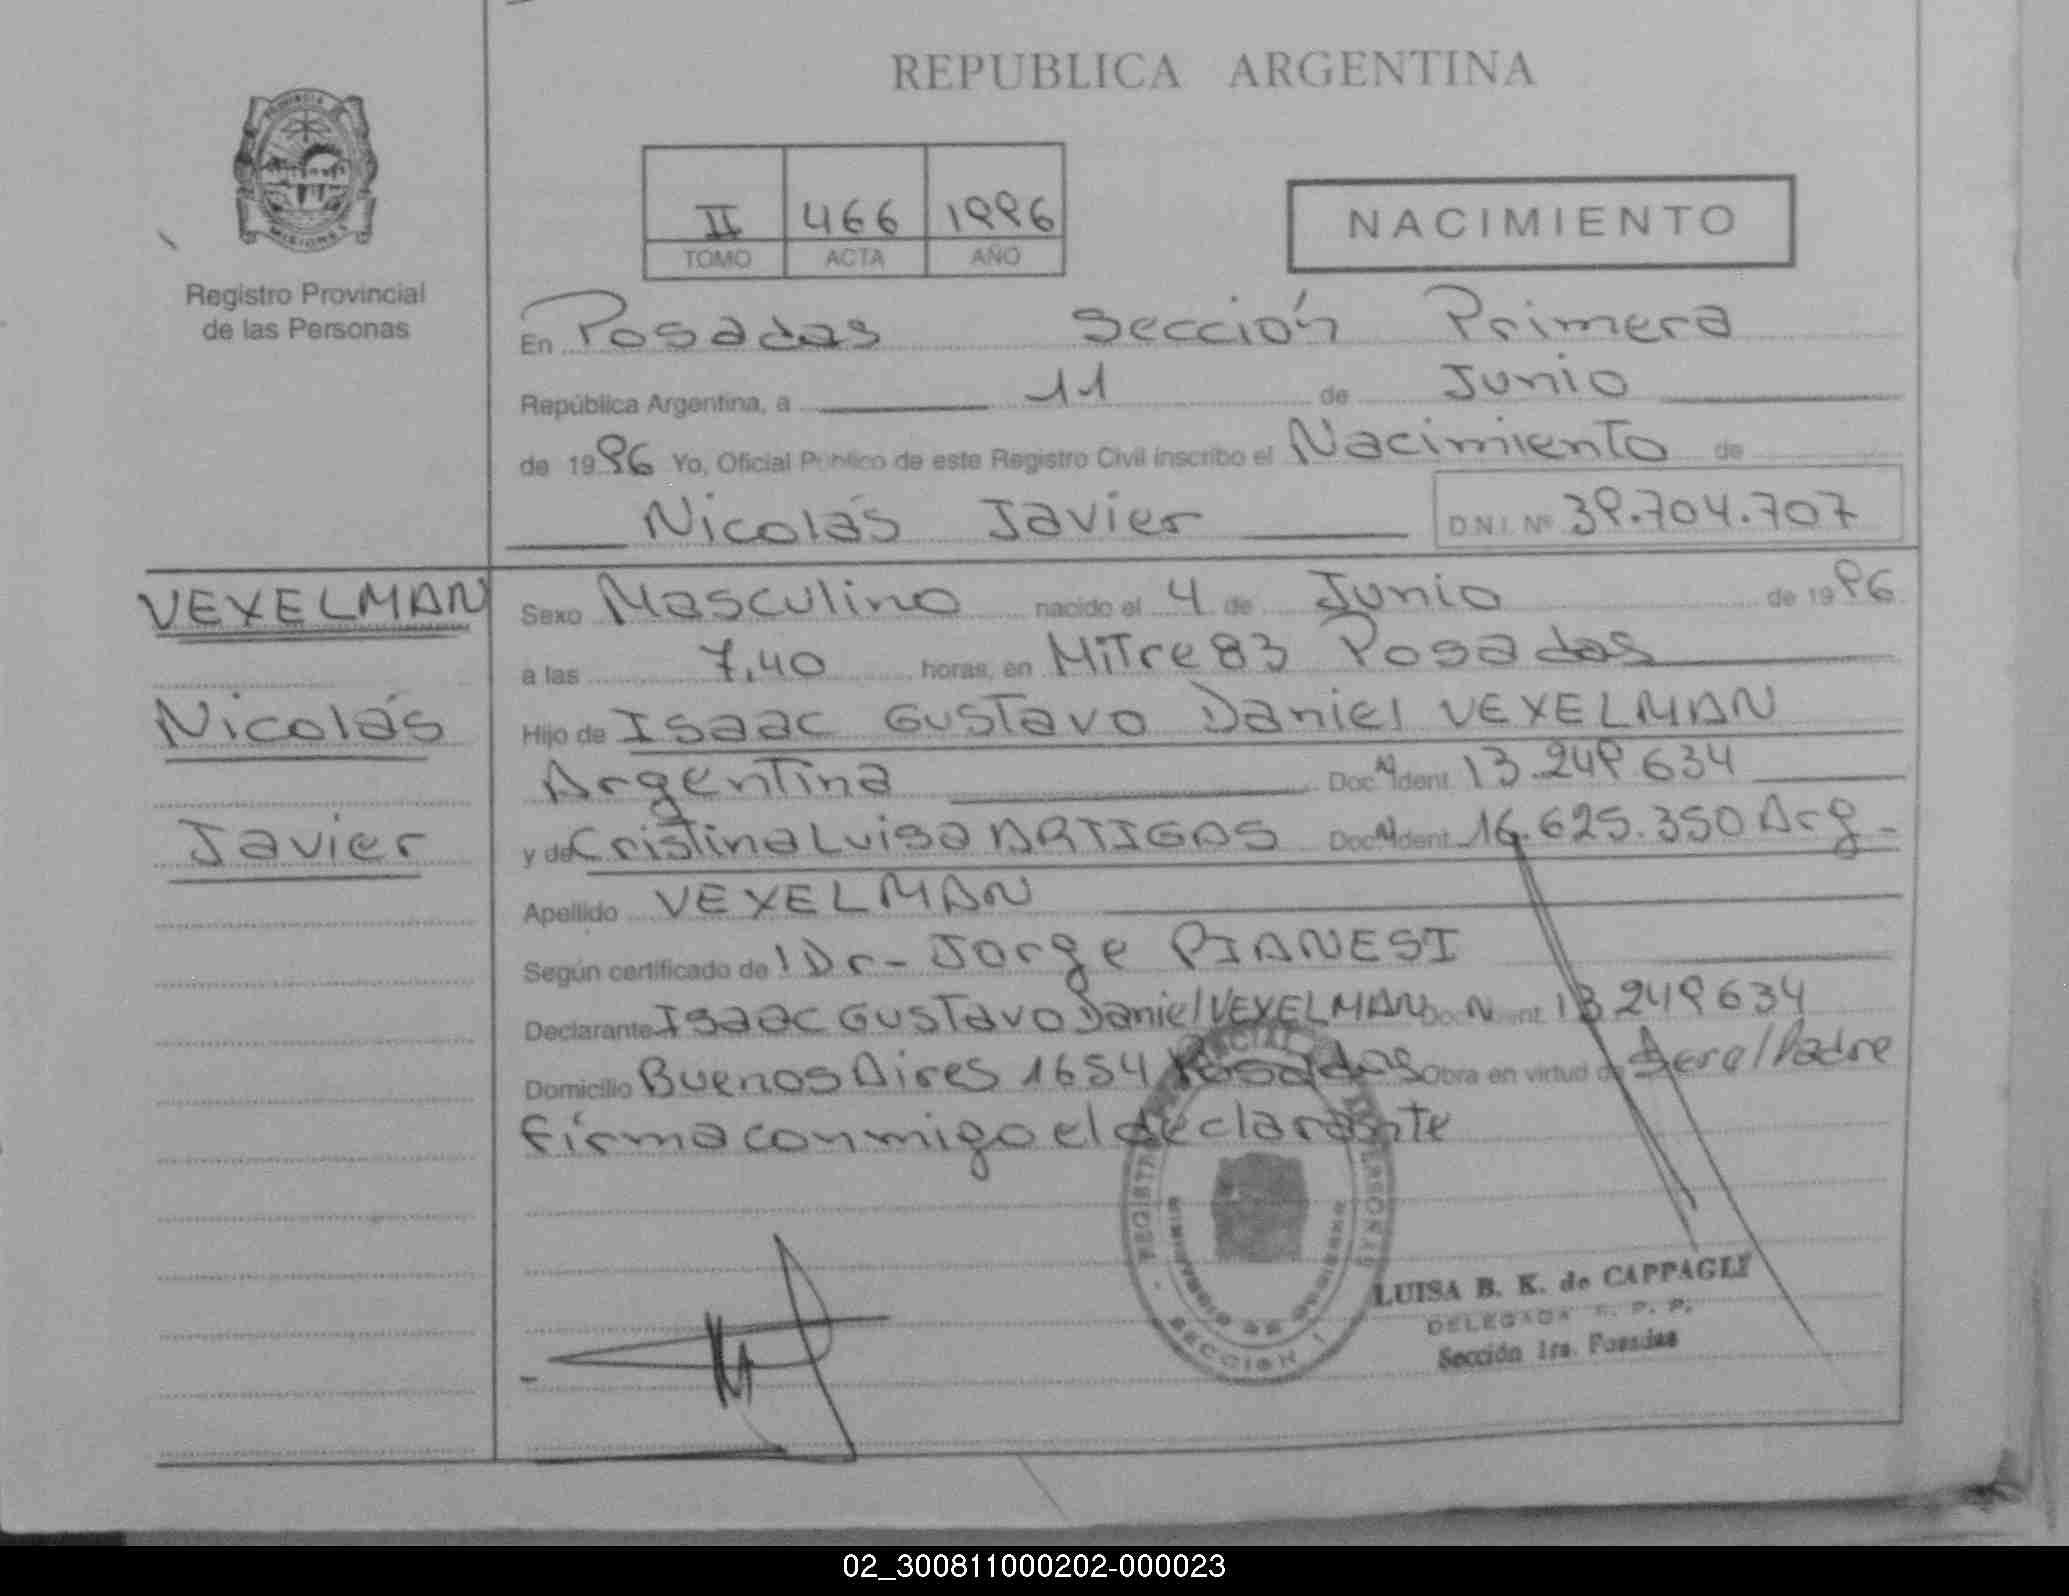 REPUBLICA ARGENTINA
PROVINCIA
MISIONES
Registro Provincial
de las Personas
II 466 1996
TOMO ACTA AÑO
NACIMIENTO
En Posadas Sección Primera
República Argentina, a 11 de Junio
de 1996 Yo, Oficial Público de este Registro Civil inscribo el Nacimiento de
Nicolás Javier D.N.I. Nº 39.704.707
VEXELMAN
Nicolás
Javier
Sexo Masculino nacido el 4 de Junio de 1996
a las 7,40 horas, en Mitre 83 Posadas
Hijo de Isaac Gustavo Daniel VEXELMAN
Argentina Doc N Ident 13.249.634
y de Cristina Luisa ARTIGAS Doc N Ident 16.625.350 Arg-
Apellido VEXELMAN
Según certificado de l Dr- Jorge PIANESI
Declarante Isaac Gustavo Daniel VEXELMAN Doc N Ident 13 249 634
Domicilio Buenos Aires 1654 Posadas Obra en virtud de ser el Padre
firma conmigo el declarante
SECCION 1
LUISA B. K. de CAPPAGLI
DELEGADA R. P. P.
Sección 1ra. Posadas
02_300811000202-000023